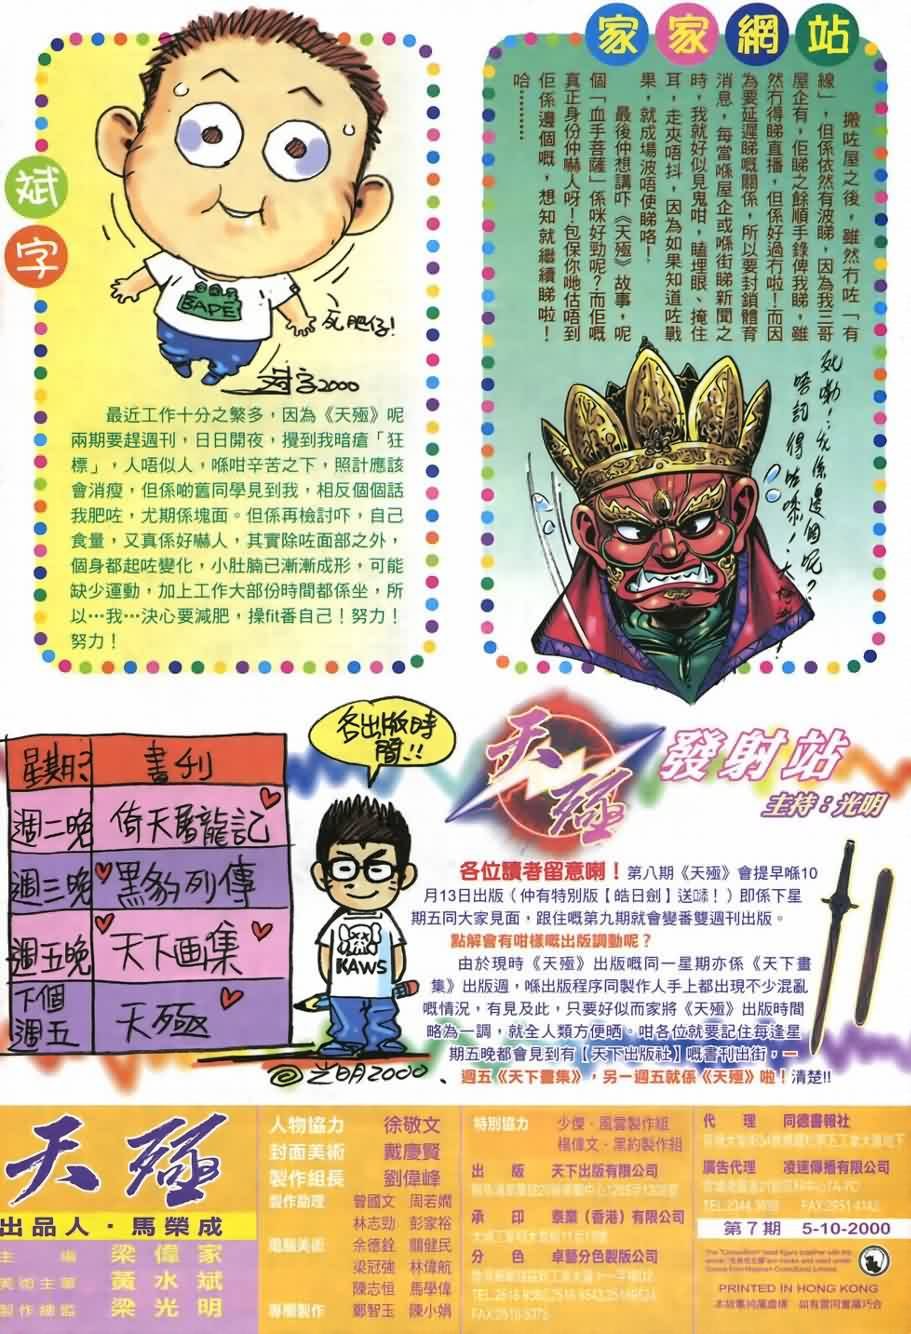 斌字
BAPE
死肥仔!
2000
最近工作十分之繁多，因為《天殛》呢
兩期要趕週刊，日日開夜，攪到我暗瘡「狂
標」，人唔似人，喺咁辛苦之下，照計應該
會消瘦，但係啲舊同學見到我，相反個個話
我肥咗，尤期係塊面。但係再檢討吓，自己
食量，又真係好嚇人，其實除咗面部之外，
個身都起咗變化，小肚腩已漸漸成形，可能
缺少運動，加上工作大部份時間都係坐，所
以…我…決心要減肥，操fit番自己！努力！
努力！
家家網站
搬咗屋之後，雖然冇咗「有
線」，但係依然有波睇，因為我三哥
屋企有，佢睇之餘順手錄俾我睇，雖
然冇得睇直播，但係好過冇啦！而因
為要延遲睇嘅關係，所以要封鎖體育
消息，每當喺屋企或喺街睇新聞之
時，我就好似見鬼咁，瞌埋眼、掩住
耳，走夾唔抖，因為如果知道咗戰
果，就成場波唔使睇咯！
最後仲想講吓《天殛》故事，呢
個「血手菩薩」係咪好勁呢？而佢嘅
真正身份仲嚇人呀！包保你哋估唔到
佢係邊個嘅，想知就繼續睇啦！
哈………
死嘞！
唔記得咗㖭！
各出版時間!!
星期 書刊
週二晚 倚天屠龍記
週三晚 黑豹列傳
週五晚 天下画集
下個週五 天殛
KAWS
光明2000
天殛
發射站
主持：光明
各位讀者留意喇！第八期《天殛》會提早喺10
月13日出版（仲有特別版【皓日劍】送㖭！）即係下星
期五同大家見面，跟住嘅第九期就會變番雙週刊出版。
點解會有咁樣嘅出版調動呢？
由於現時《天殛》出版嘅同一星期亦係《天下畫
集》出版週，喺出版程序同製作人手上都出現不少混亂
嘅情況，有見及此，只要好似而家將《天殛》出版時間
略為一調，就全人類方便晒。咁各位就要記住每逢星
期五晚都會見到有【天下出版社】嘅書刊出街，一
週五《天下畫集》，另一週五就係《天殛》啦！清楚!!
天殛
出品人・馬榮成
主編 梁偉家
美術主筆 黃水斌
製作總監 梁光明
人物協力 徐敬文
封面美術 戴慶賢
製作組長 劉偉峰
製作助理 曾國文 周若嫻
林志勁 彭家裕
電腦美術 余德銓 關健民
梁冠強 林偉航
陳志恒 馬學偉
專欄製作 鄭智玉 陳小娟
特別協力 少傑・風雲製作組
楊偉文・黑豹製作組
出版 天下出版有限公司
承印 泰業（香港）有限公司
分色 卓藝分色製版公司
代理 同德書報社
廣告代理 凌速傳播有限公司
第7期 5-10-2000
PRINTED IN HONG KONG
本故事純屬虛構 如有雷同實屬巧合